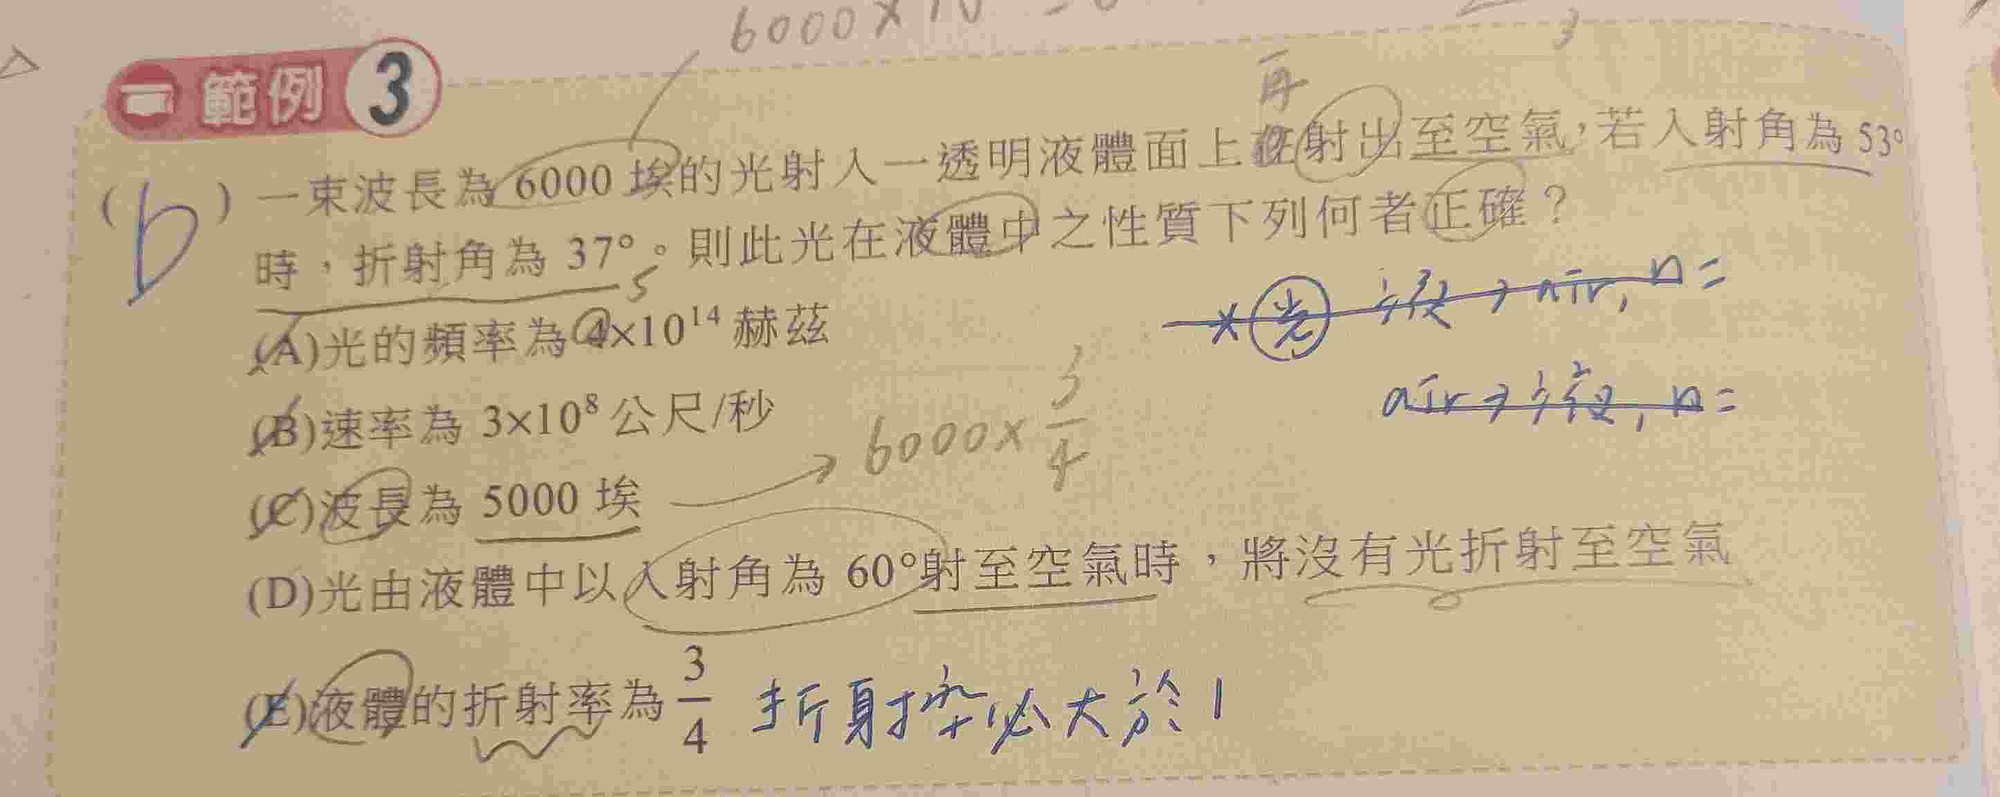 6000×10
3
範例 3
再
(D) 一束波長為 6000 埃的光射入一透明液體面上後射出至空氣,若入射角為 53°
時,折射角為 37°。則此光在液體中之性質下列何者正確?
5
(A)光的頻率為 4×10¹⁴ 赫茲
(B)速率為 3×10⁸ 公尺/秒
(C)波長為 5000 埃 → 6000×3/4
(D)光由液體中以入射角為 60°射至空氣時,將沒有光折射至空氣
(E)液體的折射率為 3/4 折射率必大於1
*光 液→air, n=
air→液, n=